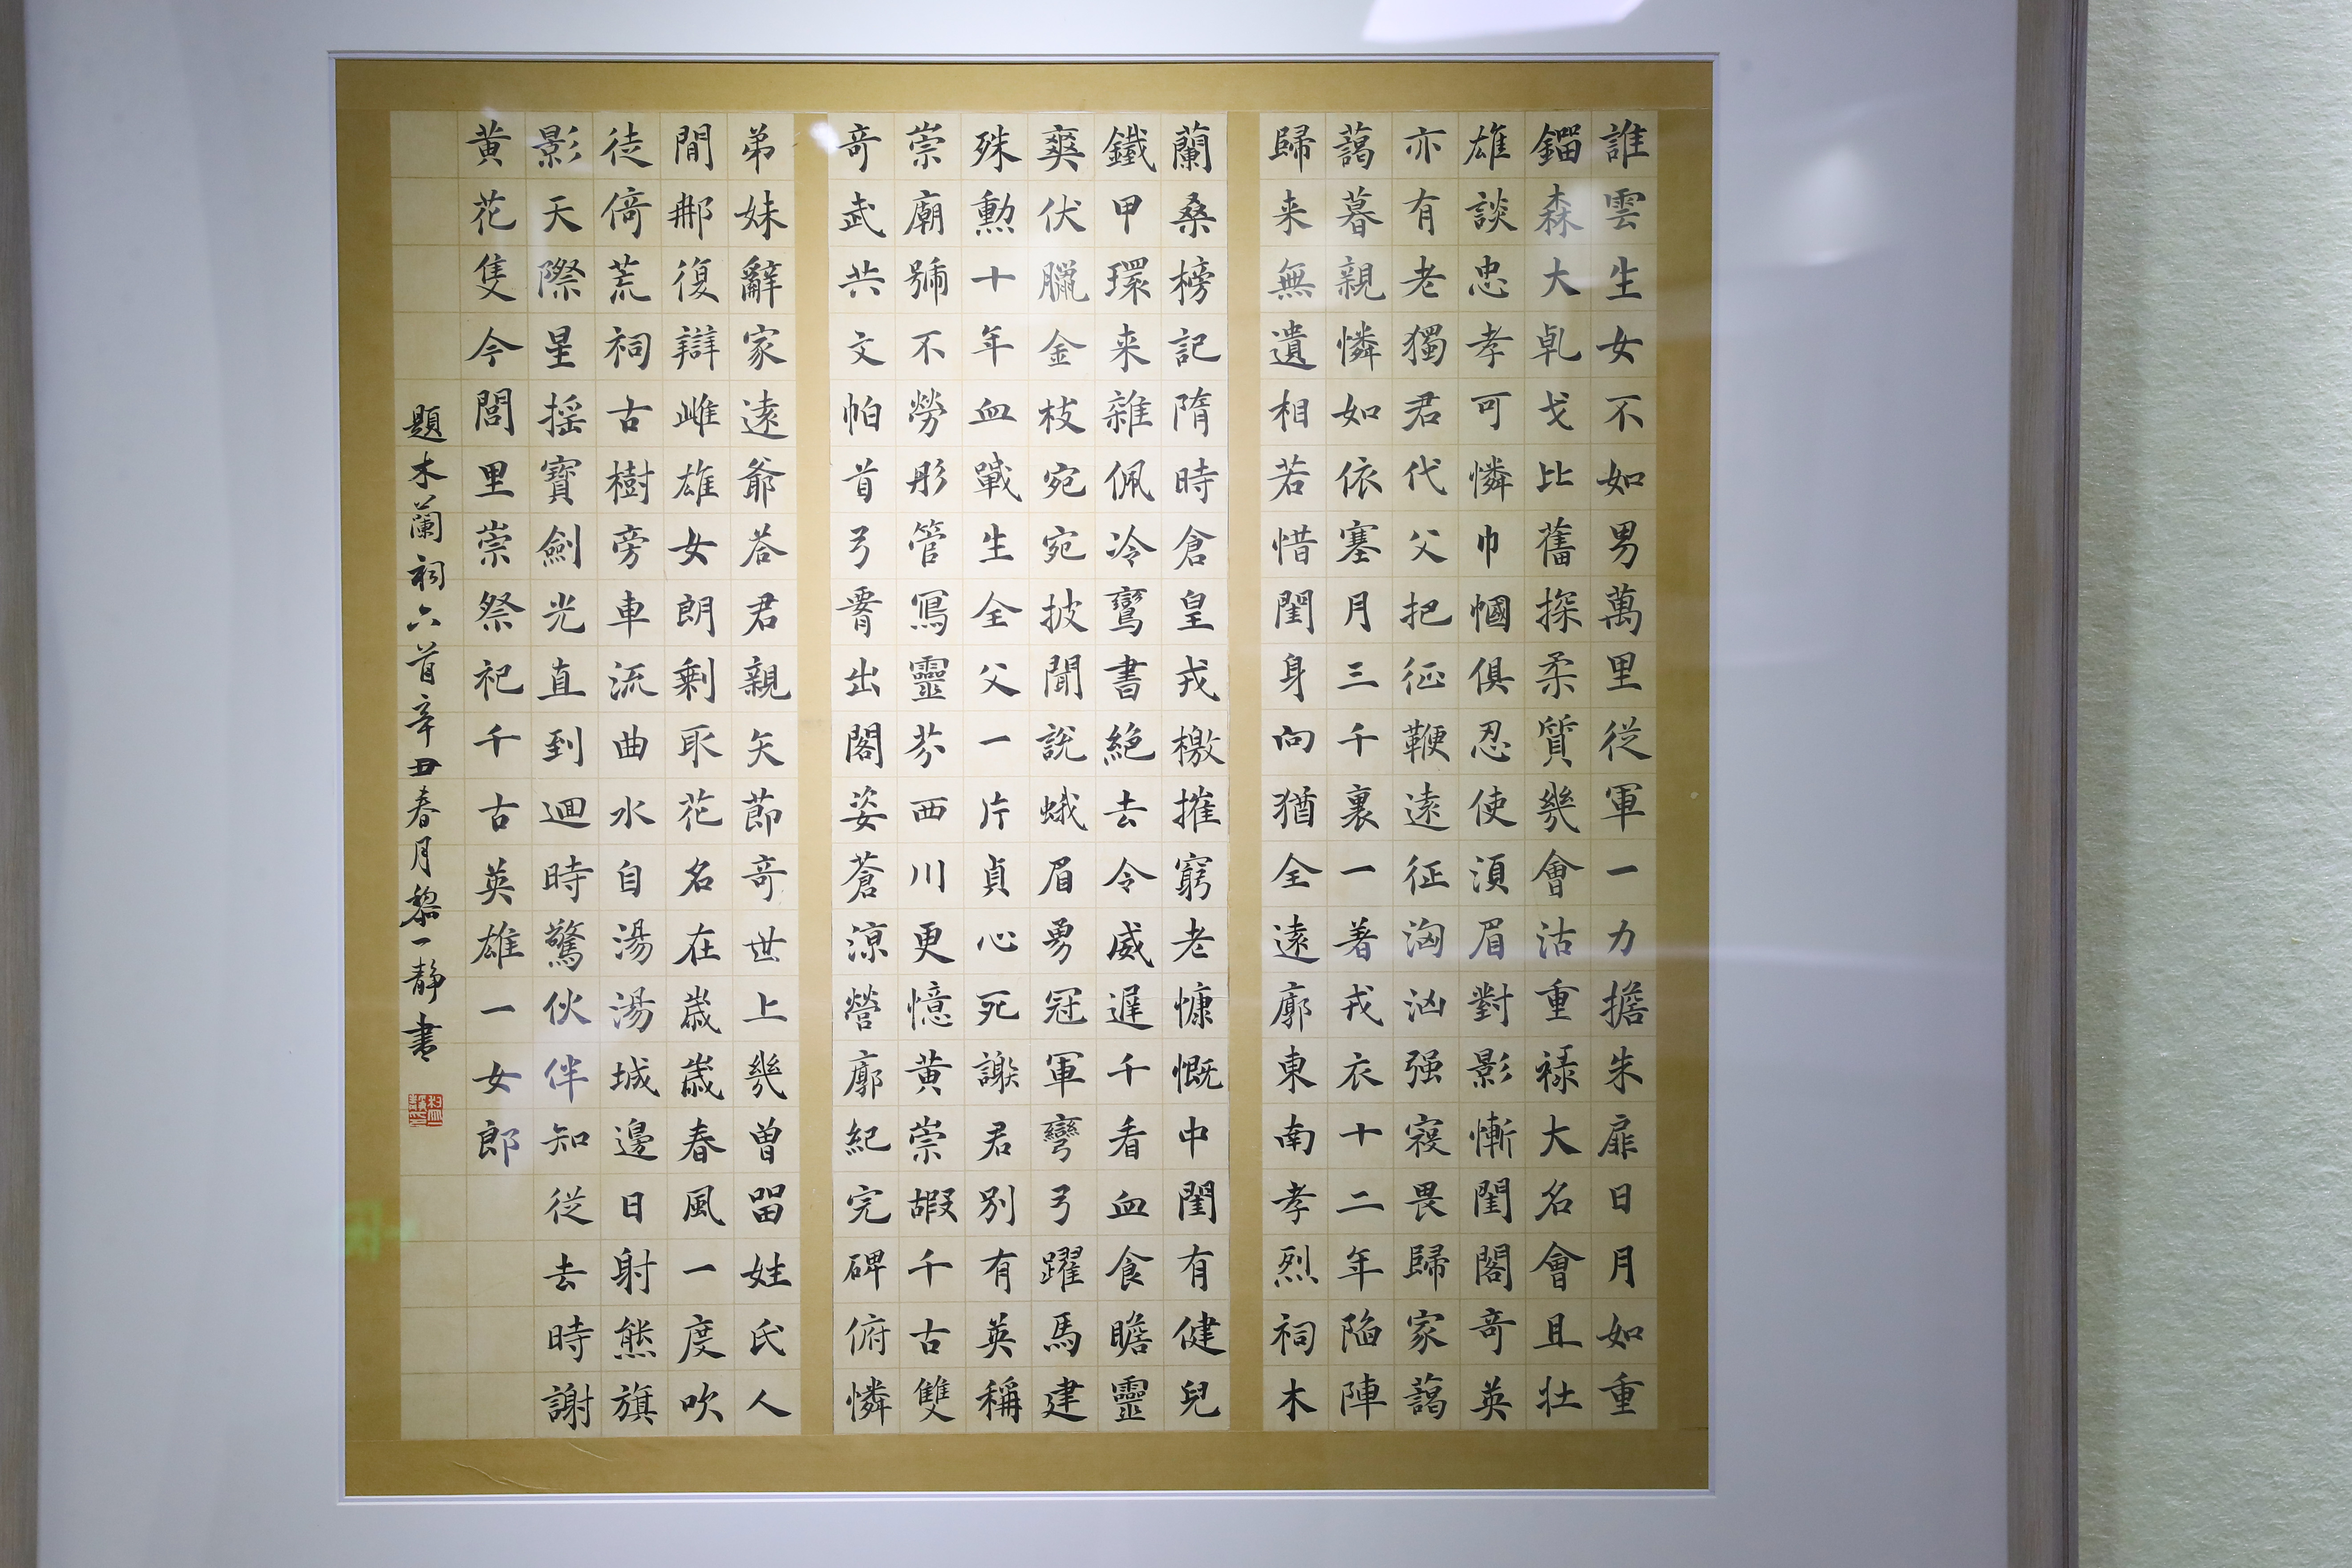 誰雲生女不如男萬里從軍一力擔朱扉日月如重
鎦森大乹戈比舊探柔質幾會沽重祿大名會且壯
雄談忠孝可憐巾幗俱忍使湏眉對影慚閨閣奇英
亦有老獨君代父把征鞭遠征洶汹强寇畏歸家藹
藹暮親憐如依塞月三千裏一著戎衣十二年陷陣
歸来無遺相若惜閨身向猶全遠廓東南孝烈祠木
蘭桑榜記隋時倉皇戎檄摧窮老慷慨中閨有健兒
鐵甲環来雜佩冷鸞書絶去令威遲千看血食瞻靈
爽伏臘金枝宛宛披聞說蛾眉勇冠軍彎弓躍馬建
殊勳十年血戰生全父一片貞心死謝君別有英稱
崇廟號不勞彤管寫靈芬西川更憶黄崇嘏千古雙
奇武共文帕首弓腰出閣姿蒼涼營廓紀完碑俯憐
弟妹辭家遠爺荅君親矢節奇世上幾曾留姓氏人
間那復辯雌雄女朗剩取花名在歲歲春風一度吹
徒倚荒祠古樹旁車流曲水自湯湯城邊日射熊旗
影天際星摇寶劍光直到迴時驚伙伴知從去時謝
黄花隻今閭里崇祭祀千古英雄一女郎
題木蘭祠六首辛丑春月黎一靜書